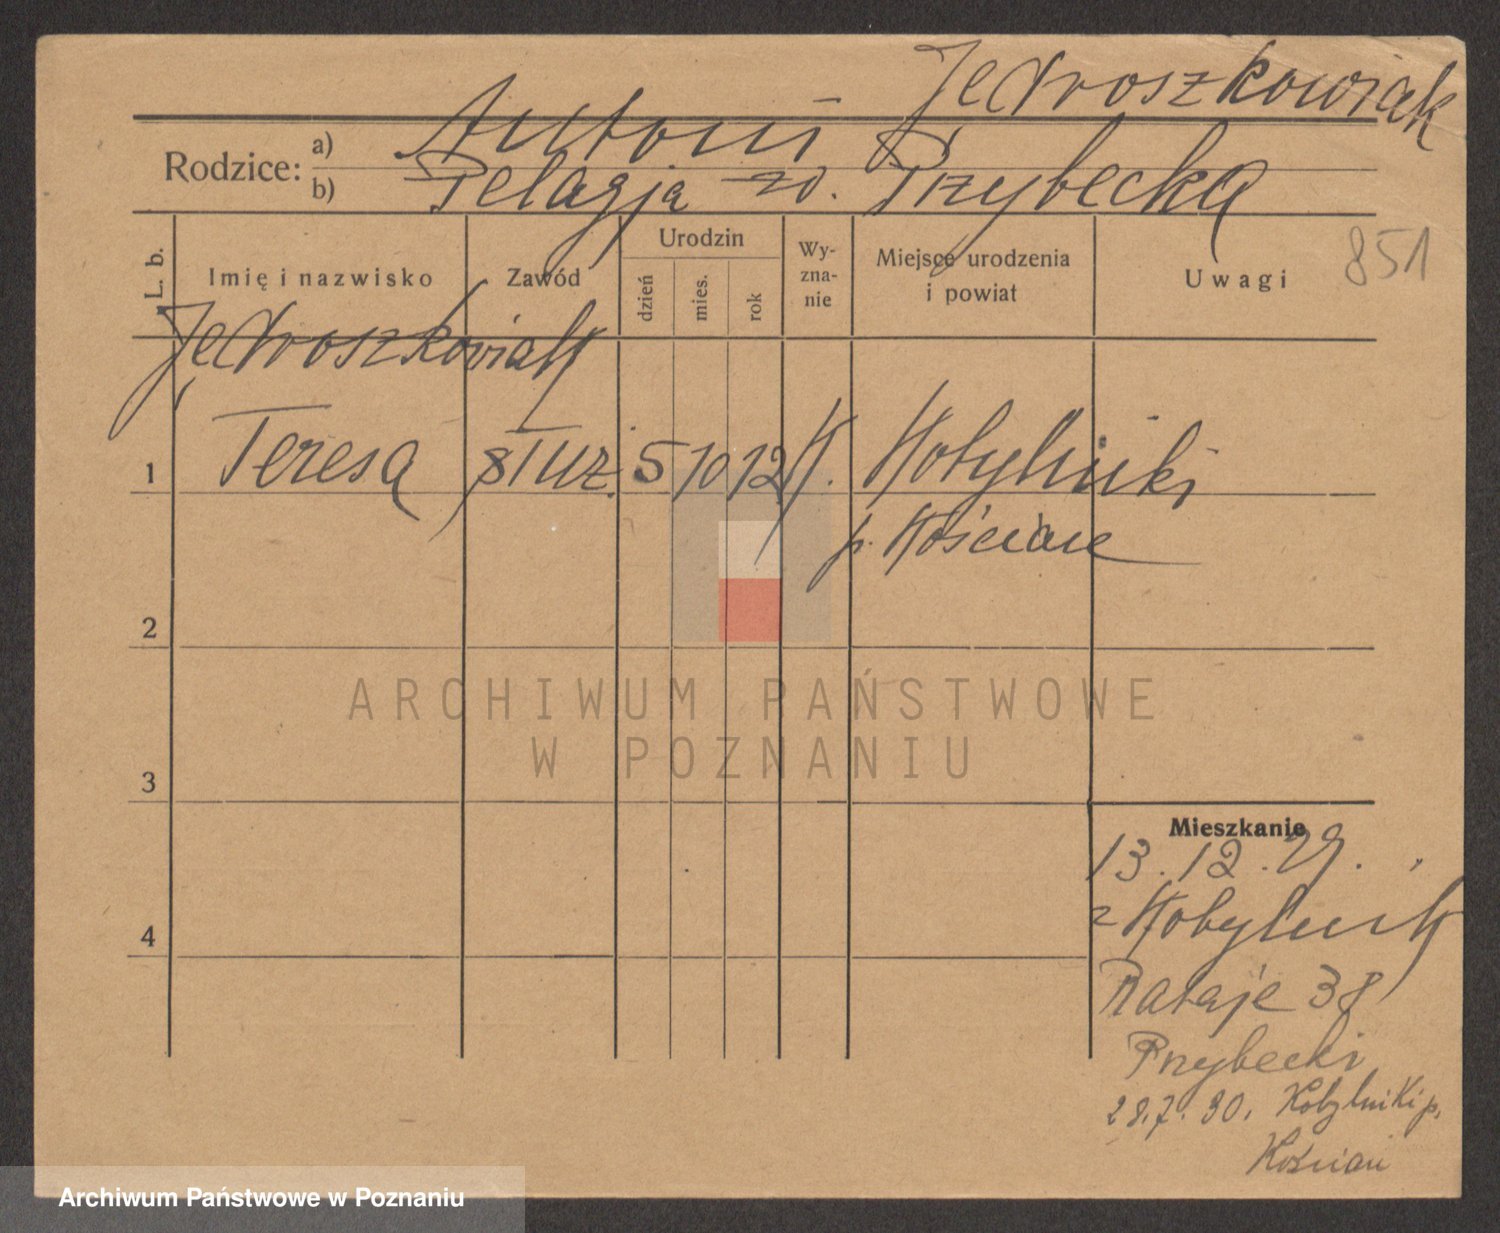 Jędroszkowiak
Rodzice: a) Antoni
b) Pelagja zd. Przybecka
L. b.
Imię i nazwisko
Zawód
Urodzin
dzień
mies.
rok
Wy-
zna-
nie
Miejsce urodzenia
i powiat
Uwagi
851
Jędroszkowiak
1 Teresa służ. 5 10 12 k. Kobylniki
p. Kościan
2
3
4
ARCHIWUM PAŃSTWOWE
W POZNANIU
Mieszkanie
13.12.29.
z Kobylnik
Rataje 38
Przybecki
28.7.30. Kobylniki p.
Kościan
Archiwum Państwowe w Poznaniu